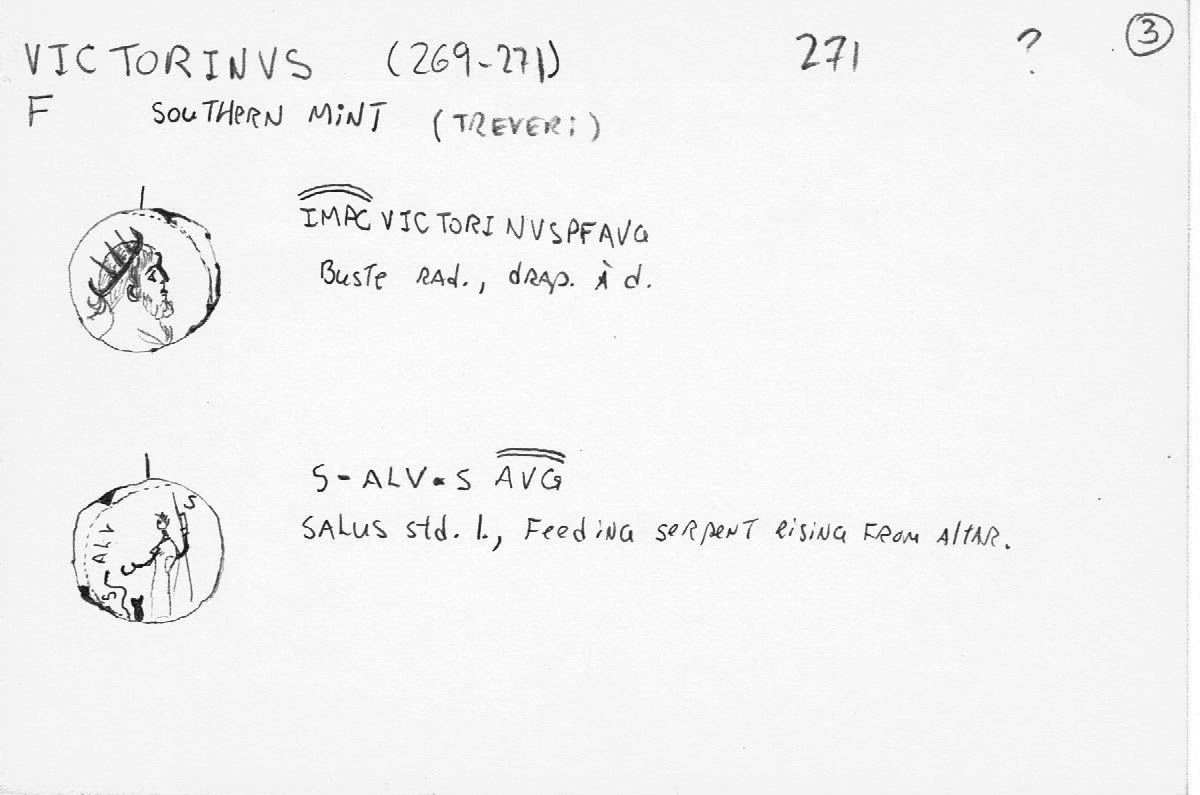 VICTORINVS (269-271) 271 ? 3
F SOUTHERN MINT (TREVERI)
IMPCVICTORINVSPFAVG
Buste RAd., dRAp. À d.
S-ALV-S AVG
SALUS std. l., Feeding serpent rising from altar.
S
ALV
S